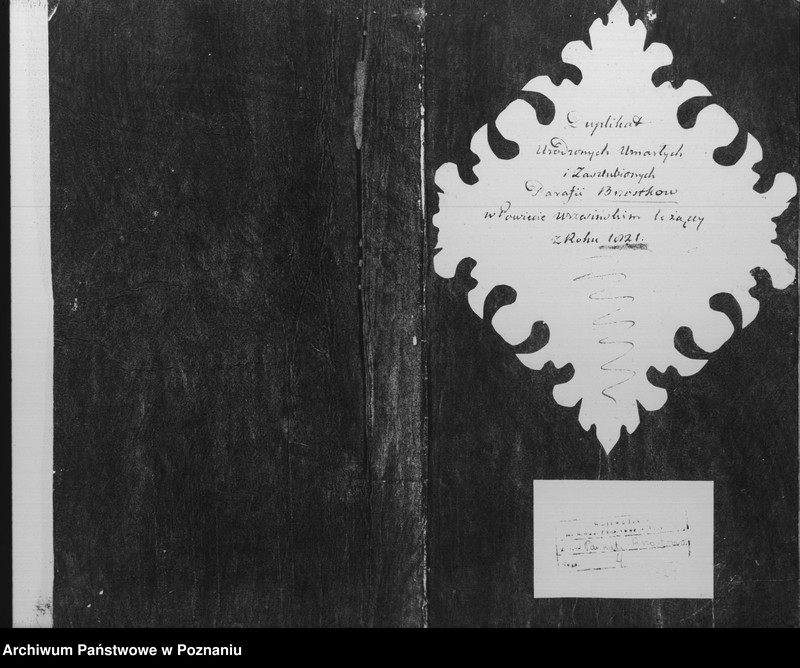 Duplikat
Urodzonych Umarłych
i Zaszlubionych
Parafii Brzostkow
w Powiecie Wrzesińskim leżący
z Roku 1821.
4
Archiwum Państwowe w Poznaniu